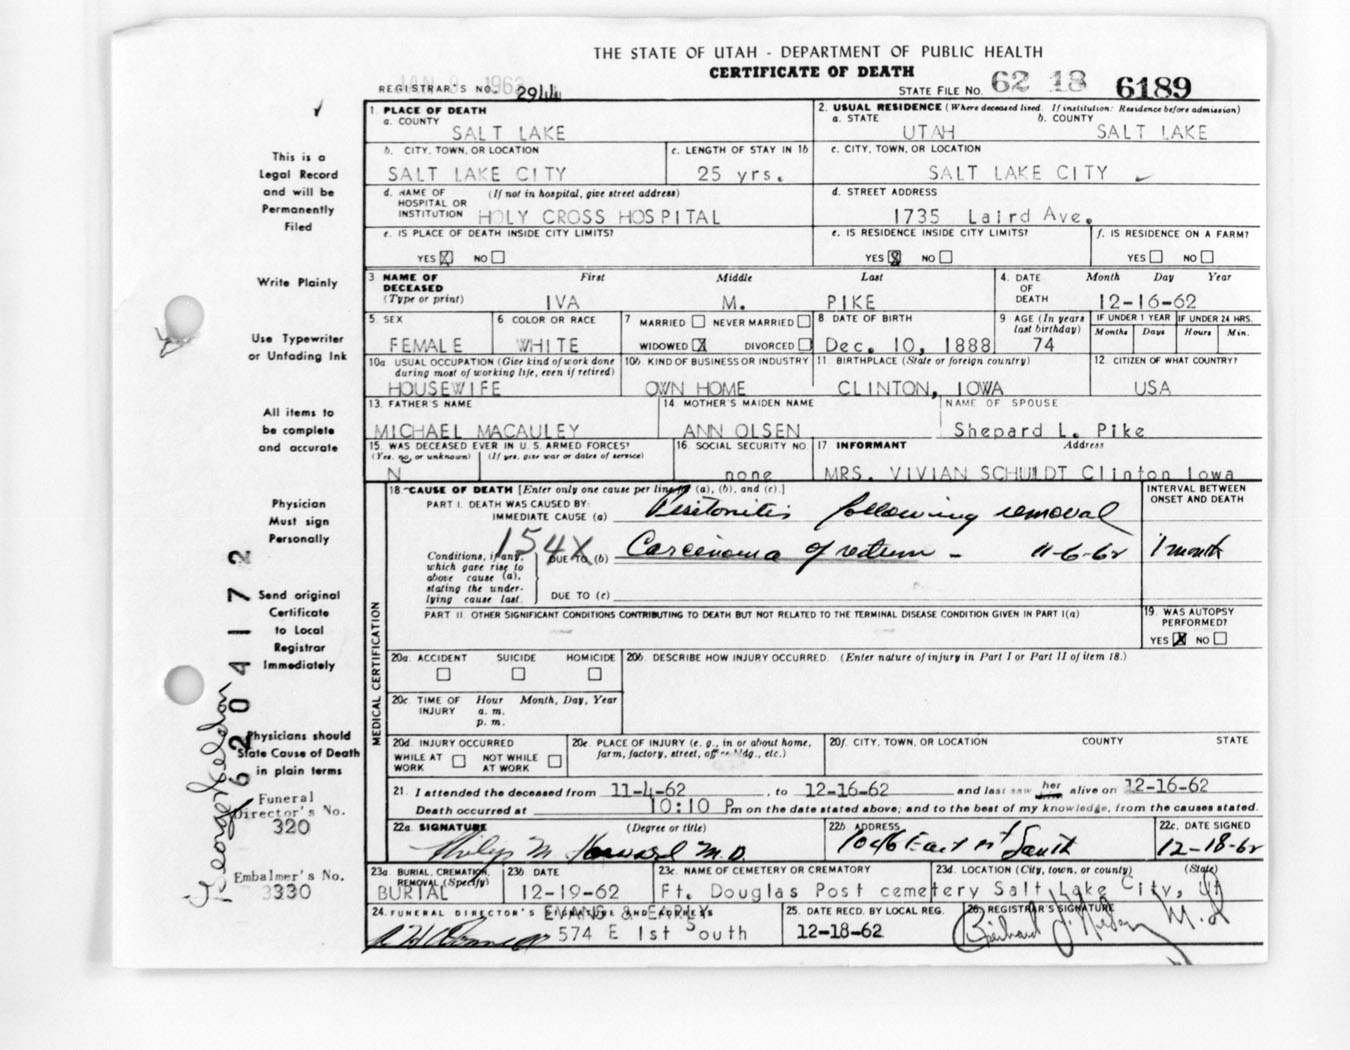 THE STATE OF UTAH - DEPARTMENT OF PUBLIC HEALTH
CERTIFICATE OF DEATH
JAN 8 1963
REGISTRAR'S NO. 2944
STATE FILE NO. 62 18 6189
This is a
Legal Record
and will be
Permanently
Filed
Write Plainly
Use Typewriter
or Unfading Ink
All items to
be complete
and accurate
Physician
Must sign
Personally
Send original
Certificate
to Local
Registrar
Immediately
Physicians should
State Cause of Death
in plain terms
Funeral
Director's No.
320
Embalmer's No.
3330
62 04172
1. PLACE OF DEATH
a. COUNTY
SALT LAKE
2. USUAL RESIDENCE (Where deceased lived. If institution: Residence before admission)
a. STATE b. COUNTY
UTAH SALT LAKE
b. CITY, TOWN, OR LOCATION
SALT LAKE CITY
c. LENGTH OF STAY IN 1b
25 yrs.
c. CITY, TOWN, OR LOCATION
SALT LAKE CITY
d. NAME OF (If not in hospital, give street address)
HOSPITAL OR
INSTITUTION HOLY CROSS HOSPITAL
d. STREET ADDRESS
1735 Laird Ave.
e. IS PLACE OF DEATH INSIDE CITY LIMITS?
YES X NO
e. IS RESIDENCE INSIDE CITY LIMITS?
YES X NO
f. IS RESIDENCE ON A FARM?
YES NO
3. NAME OF
DECEASED
(Type or print)
First Middle Last
IVA M. PIKE
4. DATE
OF
DEATH
Month Day Year
12-16-62
5. SEX
FEMALE
6. COLOR OR RACE
WHITE
7. MARRIED NEVER MARRIED
WIDOWED X DIVORCED
8. DATE OF BIRTH
Dec. 10, 1888
9. AGE (In years
last birthday)
74
IF UNDER 1 YEAR IF UNDER 24 HRS.
Months Days Hours Min.
10a. USUAL OCCUPATION (Give kind of work done
during most of working life, even if retired)
HOUSEWIFE
10b. KIND OF BUSINESS OR INDUSTRY
OWN HOME
11. BIRTHPLACE (State or foreign country)
CLINTON, IOWA
12. CITIZEN OF WHAT COUNTRY?
USA
13. FATHER'S NAME
MICHAEL MACAULEY
14. MOTHER'S MAIDEN NAME
ANN OLSEN
NAME OF SPOUSE
Shepard L. Pike
15. WAS DECEASED EVER IN U. S. ARMED FORCES?
(Yes, no, or unknown) (If yes, give war or dates of service)
N
16. SOCIAL SECURITY NO.
none
17. INFORMANT Address
MRS. VIVIAN SCHULDT Clinton Iowa
MEDICAL CERTIFICATION
18. CAUSE OF DEATH [Enter only one cause per line for (a), (b), and (c).]
INTERVAL BETWEEN
ONSET AND DEATH
PART I. DEATH WAS CAUSED BY:
IMMEDIATE CAUSE (a) Peritonitis following removal
154X
Conditions, if any,
which gave rise to
above cause (a),
stating the under-
lying cause last.
DUE TO (b) Carcinoma of rectum - 11-6-62 1 month
DUE TO (c)
PART II. OTHER SIGNIFICANT CONDITIONS CONTRIBUTING TO DEATH BUT NOT RELATED TO THE TERMINAL DISEASE CONDITION GIVEN IN PART I(a)
19. WAS AUTOPSY
PERFORMED?
YES X NO
20a. ACCIDENT SUICIDE HOMICIDE
20b. DESCRIBE HOW INJURY OCCURRED. (Enter nature of injury in Part I or Part II of item 18.)
20c. TIME OF Hour Month, Day, Year
INJURY a. m.
p. m.
20d. INJURY OCCURRED
WHILE AT WORK NOT WHILE AT WORK
20e. PLACE OF INJURY (e. g., in or about home,
farm, factory, street, office bldg., etc.)
20f. CITY, TOWN, OR LOCATION COUNTY STATE
21. I attended the deceased from 11-4-62, to 12-16-62 and last saw her alive on 12-16-62
Death occurred at 10:10 Pm on the date stated above; and to the best of my knowledge, from the causes stated.
22a. SIGNATURE (Degree or title)
Philip M. Howard M.D.
22b. ADDRESS
1046 East 1st South
22c. DATE SIGNED
12-18-62
23a. BURIAL, CREMATION,
REMOVAL (Specify)
BURIAL
23b. DATE
12-19-62
23c. NAME OF CEMETERY OR CREMATORY
Ft. Douglas Post cemetery
23d. LOCATION (City, town, or county) (State)
Salt Lake City, Ut
24. FUNERAL DIRECTOR'S SIGNATURE AND ADDRESS
EVANS & EARLY
574 E 1st South
25. DATE RECD. BY LOCAL REG.
12-18-62
26. REGISTRAR'S SIGNATURE